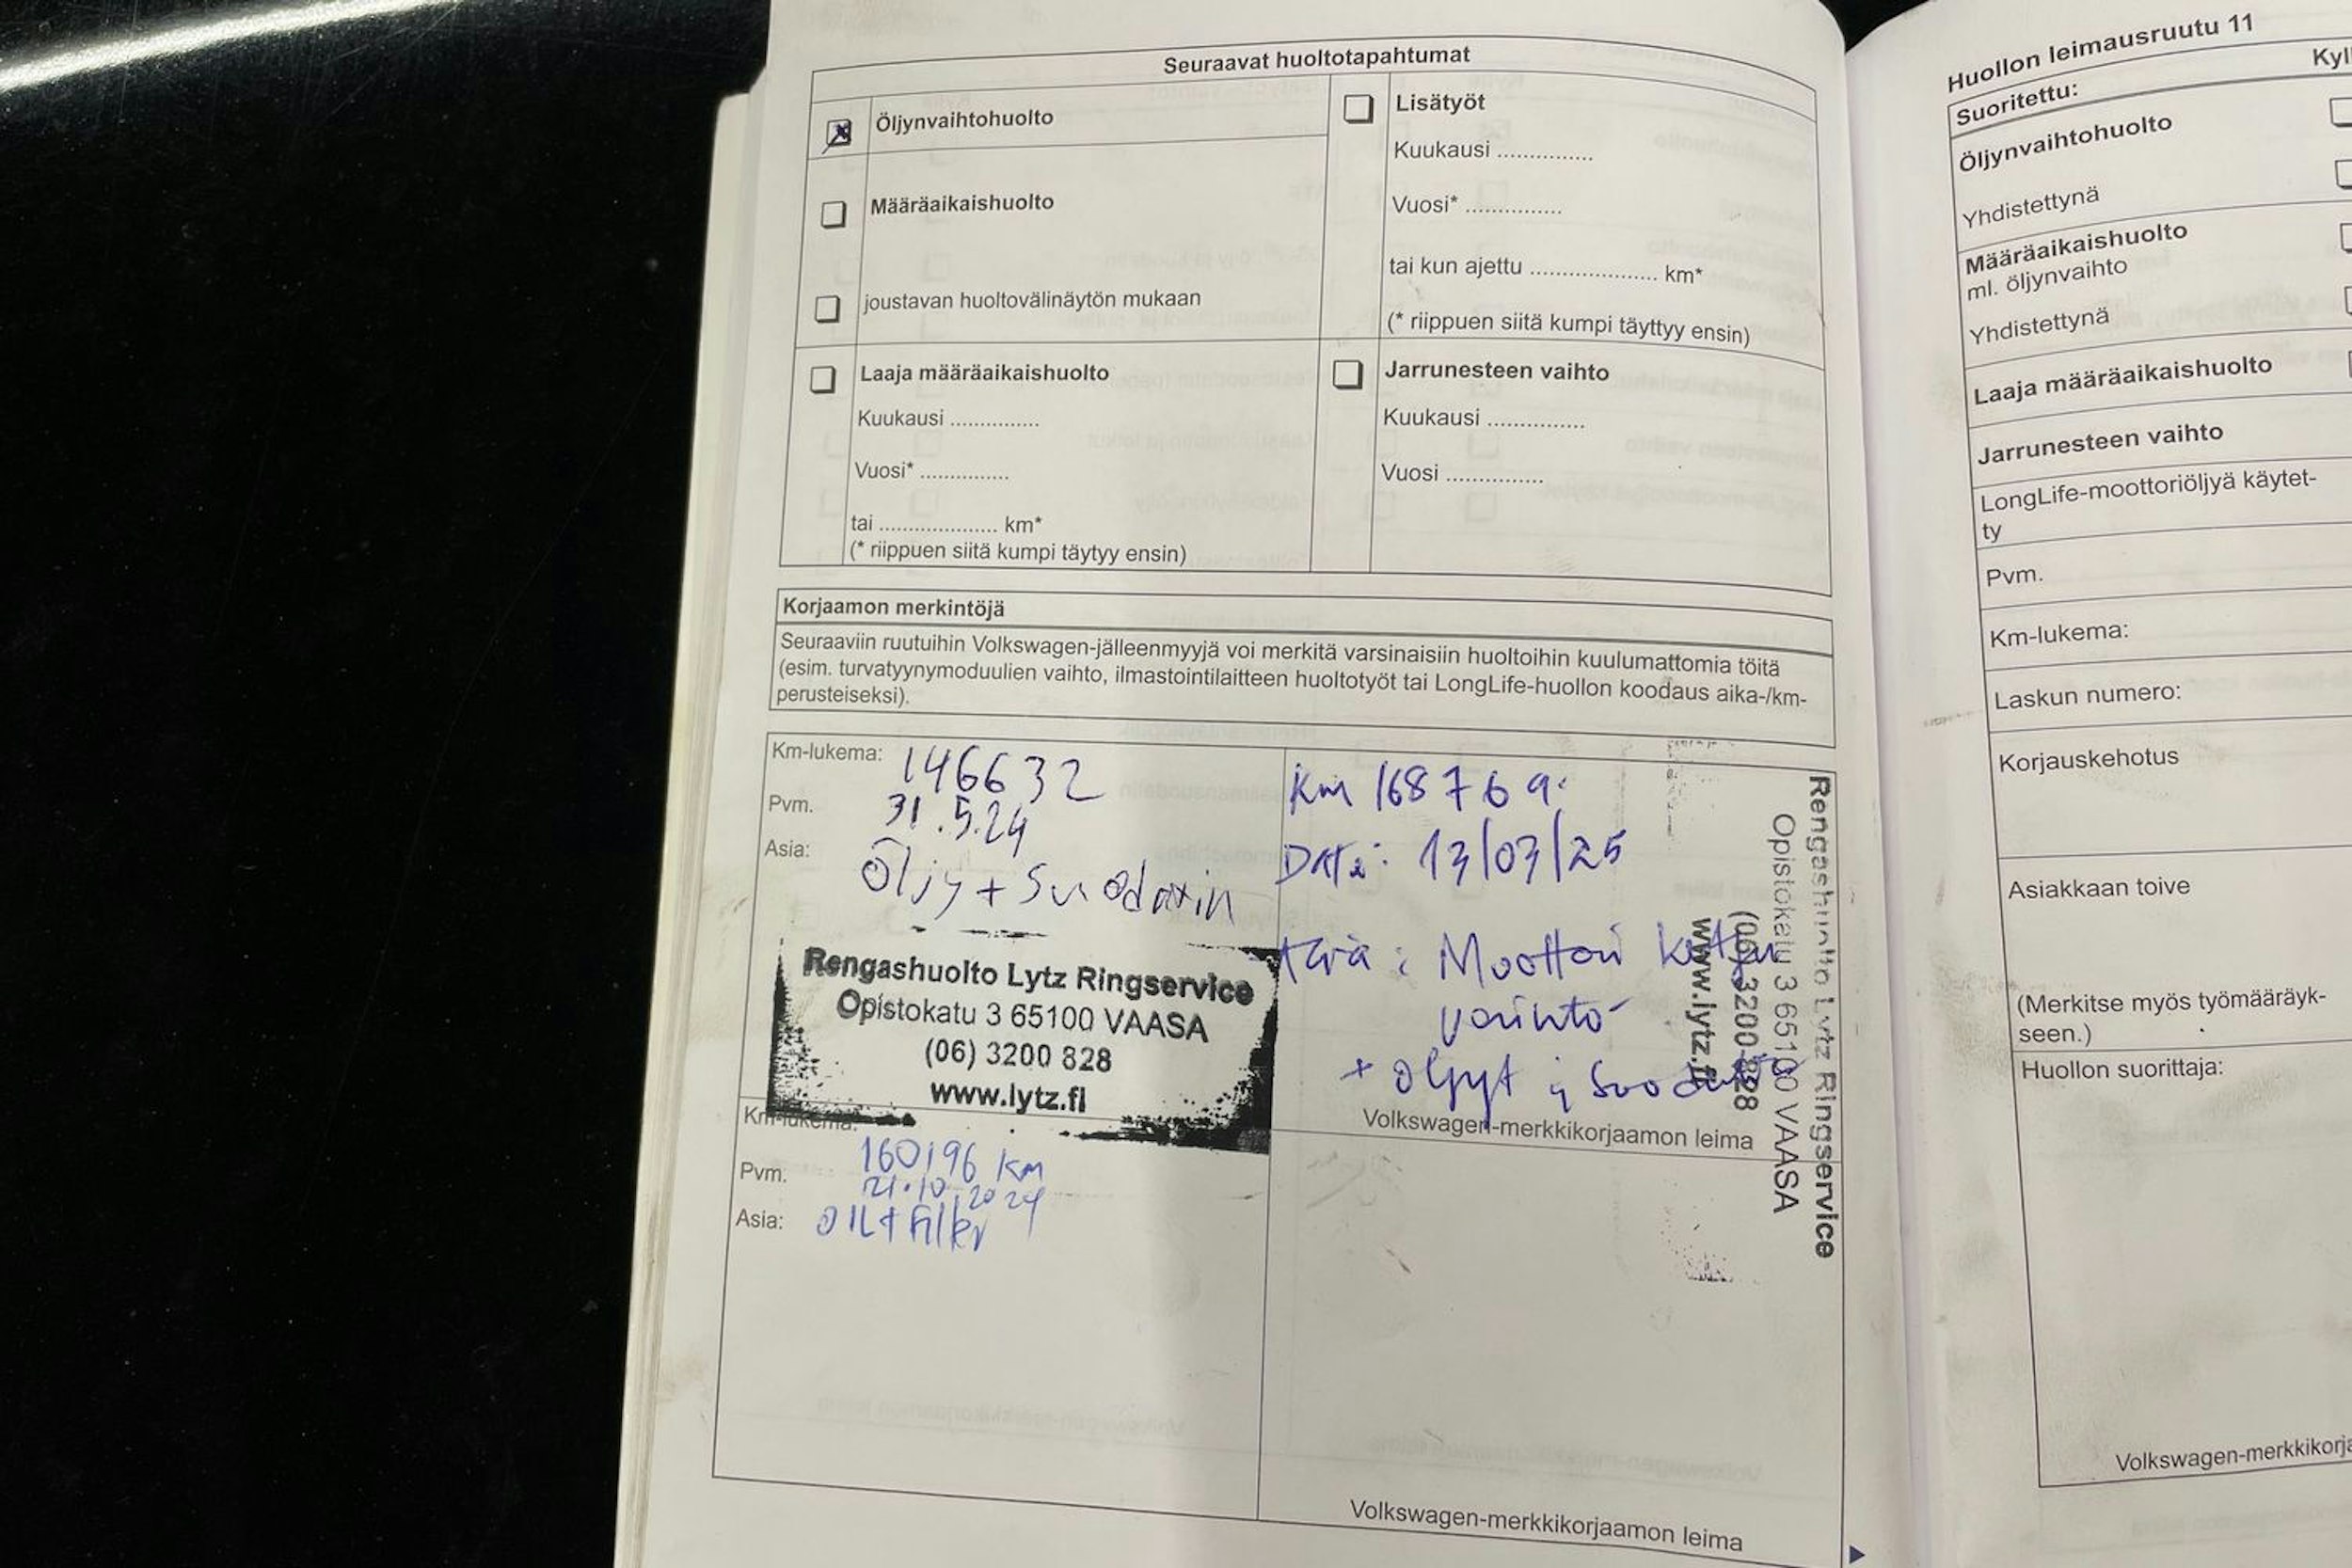 Seuraavat huoltotapahtumat
Öljynvaihtohuolto
Määräaikaishuolto
joustavan huoltovälinäytön mukaan
Lisätyöt
Kuukausi ...............
Vuosi* ...............
tai kun ajettu .................... km*
(* riippuen siitä kumpi täyttyy ensin)
Laaja määräaikaishuolto
Kuukausi ...............
Vuosi* ...............
tai .................... km*
(* riippuen siitä kumpi täytyy ensin)
Jarrunesteen vaihto
Kuukausi ...............
Vuosi ...............
Korjaamon merkintöjä
Seuraaviin ruutuihin Volkswagen-jälleenmyyjä voi merkitä varsinaisiin huoltoihin kuulumattomia töitä
(esim. turvatyynymoduulien vaihto, ilmastointilaitteen huoltotyöt tai LongLife-huollon koodaus aika-/km-
perusteiseksi).
Km-lukema: 146632
Pvm. 31.5.24
Asia: Öljy + Suodatin
Rengashuolto Lytz Ringservice
Opistokatu 3 65100 VAASA
(06) 3200 828
www.lytz.fi
Km 168769
Date: 13/03/25
Moottori
+ öljyt
Rengashuolto Lytz Ringservice
Opistokatu 3 65100 VAASA
(06) 3200 828
www.lytz.fi
Volkswagen-merkkikorjaamon leima
Km-lukema: 160196 Km
Pvm. 21.10.2024
Asia: OIL + Filter
Volkswagen-merkkikorjaamon leima
Huollon leimausruutu 11
Suoritettu:
Öljynvaihtohuolto
Yhdistettynä
Määräaikaishuolto
ml. öljynvaihto
Yhdistettynä
Laaja määräaikaishuolto
Jarrunesteen vaihto
LongLife-moottoriöljyä käytet-
ty
Pvm.
Km-lukema:
Laskun numero:
Korjauskehotus
Asiakkaan toive
(Merkitse myös työmääräyk-
seen.)
Huollon suorittaja: